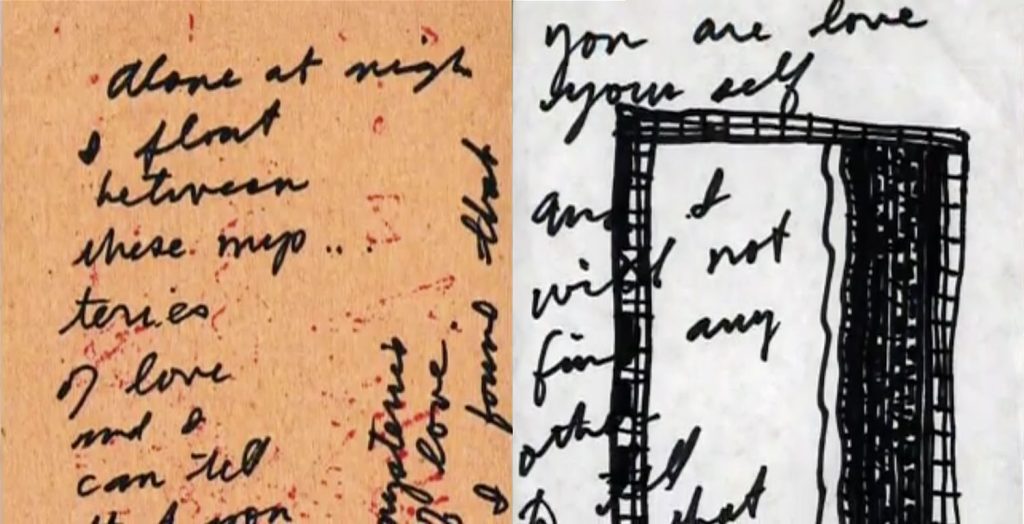 alone at nigh
I float
between
these mys...
teries
of love
and I
can tell
that you
mysteries
of love
I found that
you are love
your self
and I
will not
find any
other
to tell
that